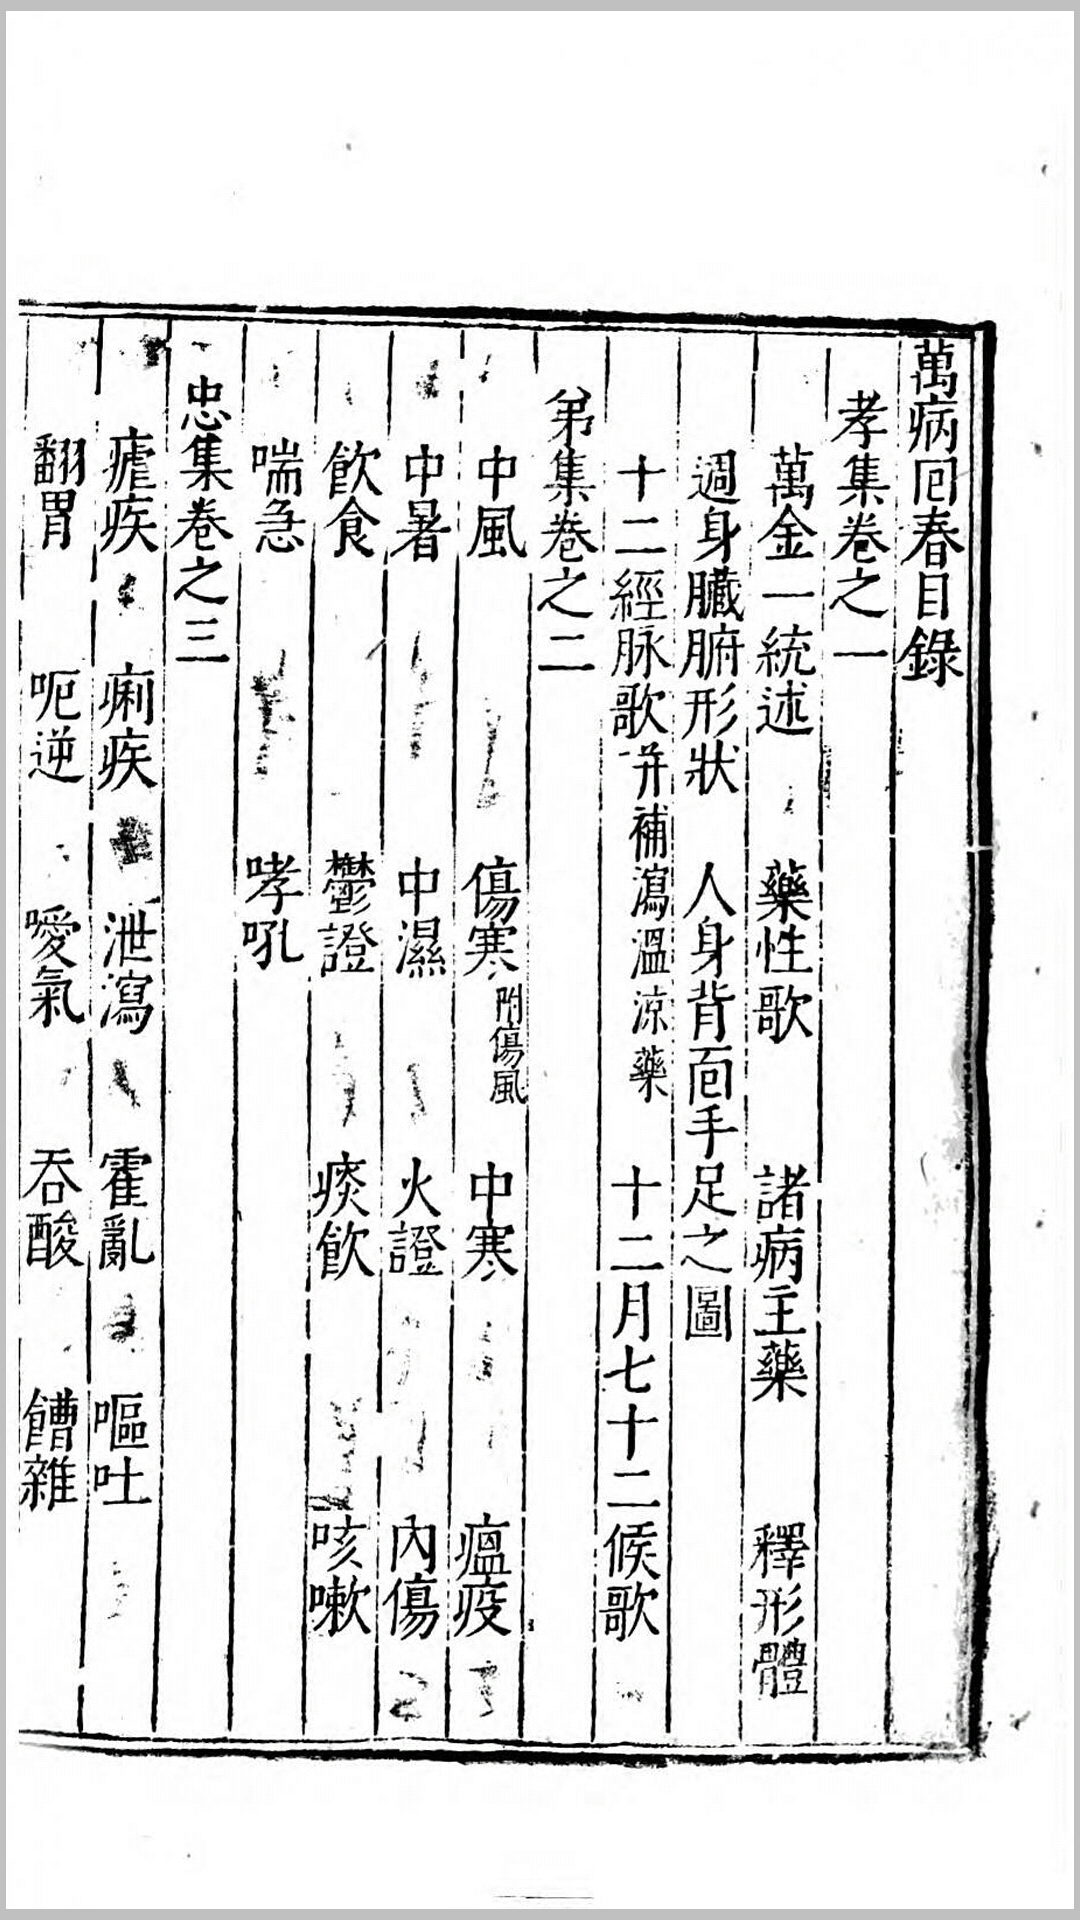 萬病囘春目錄
孝集卷之一
萬金一統述 藥性歌 諸病主藥 釋形體
週身臟腑形狀 人身背面手足之圖
十二經脉歌并補瀉溫涼藥 十二月七十二候歌
弟集卷之二
中風 傷寒附傷風 中寒 瘟疫
中暑 中濕 火證 內傷
飲食 鬱證 痰飲 咳嗽
喘急 哮吼
忠集卷之三
瘧疾 痢疾 泄瀉 霍亂 嘔吐
翻胃 呃逆 噯氣 吞酸 饋雜